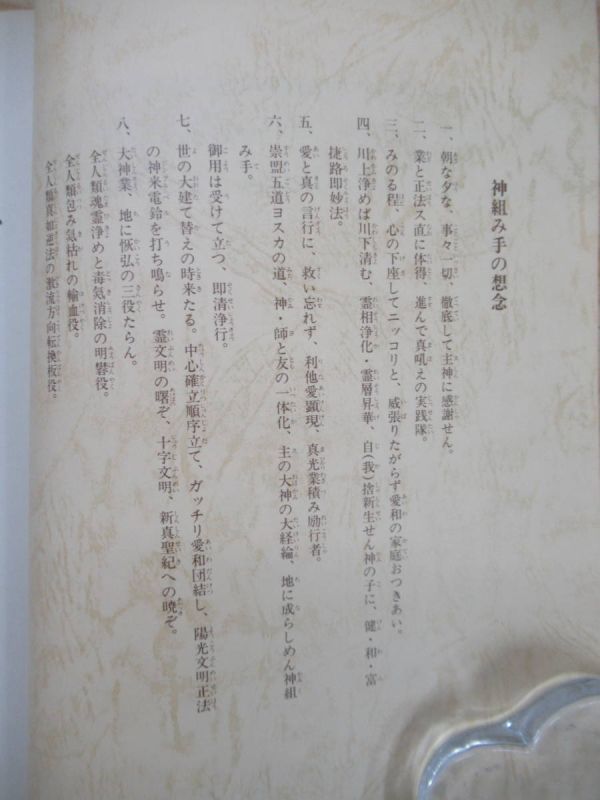 神組み手の想念
一、朝な夕な、事々一切、徹底して主神に感謝せん。
二、業と正法ス直に体得、進んで真吼えの実践隊。
三、みのる程、心の下座してニッコリと、威張りたがらず愛和の家庭おつきあい。
四、川上浄めば川下清む、霊相浄化・霊層昇華、自(我)捨新生せん神の子に、健・和・富
捷路即妙法。
五、愛と真の言行に、救い忘れず、利他愛顕現、真光業積み励行者。
六、崇盟五道ヨスカの道、神・師と友の一体化、主の大神の大経綸、地に成らしめん神組
み手。
御用は受けて立つ、即清浄行。
七、世の大建て替えの時来たる。中心確立順序立て、ガッチリ愛和団結し、陽光文明正法
の神来電鈴を打ち鳴らせ。霊文明の曙ぞ、十字文明、新真聖紀への暁ぞ。
八、大神業、地に恢弘の三役たらん。
全人類魂霊浄めと毒気消除の明礬役。
全人類包み気枯れの輸血役。
全人類真如逆法の激流方向転換板役。